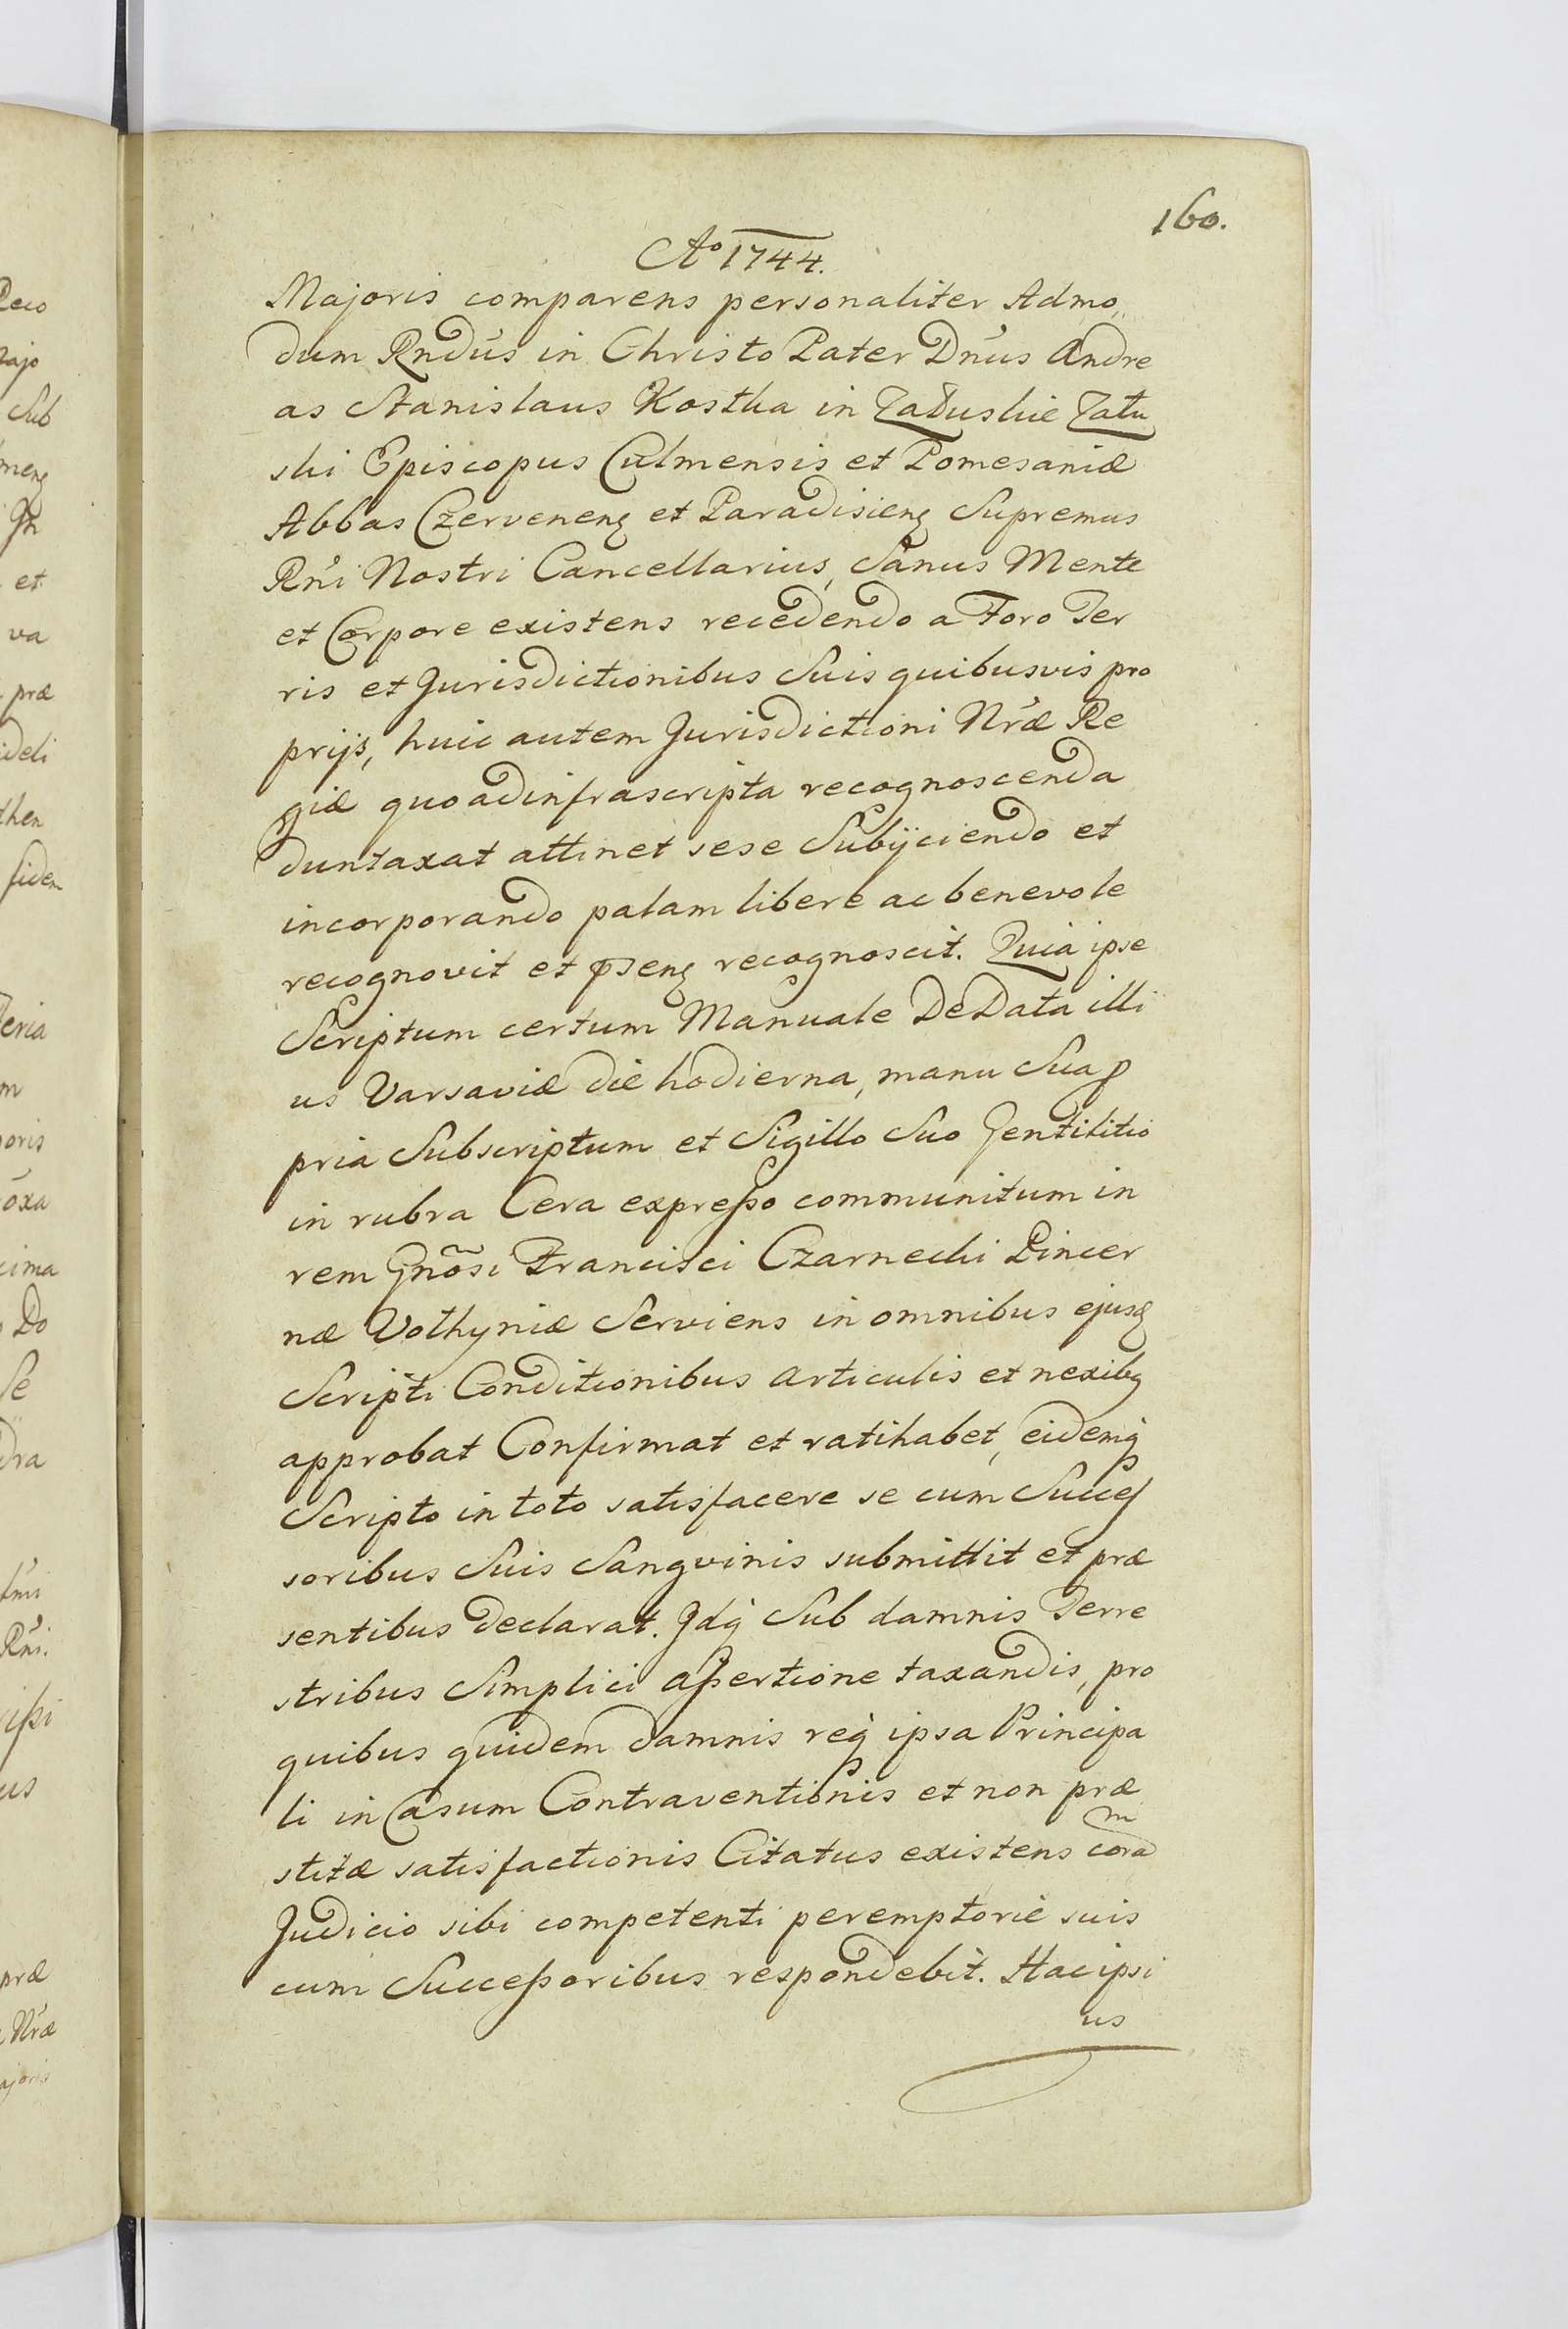 160.
Aº 1744.
Majoris comparens personaliter Admo„
dum Rndus in Christo Pater Dnus Andre
as Stanislaus Kostka in Załuskie Zału
ski Episcopus Culmensis et Pomesaniæ
Abbas Czervenenꝫ et Paradisienꝫ Supremus
Rni Nostri Cancellarius, Sanus Mente
et Corpore existens recedendo a Foro Ter
ris et Jurisdictionibus Suis quibusvis pro
prijs, huic autem Jurisdictioni Nræ Re
giæ quoad infrascripta recognoscenda
duntaxat attinet sese Subijciendo et
incorporando palam libere ac benevole
recognovit et pñsenꝫ recognoscit. Quia ipse
Scriptum certum Manuale De Data illi
us Varsaviæ die hodierna, manu Sua ꝓ
pria Subscriptum et Sigillo Suo Gentilitio
in rubra Cera expreßo communitum in
rem Gnõsi Francisci Czarnecki Pincer
næ Volhyniæ Serviens in omnibus ejusꝫ
Scripti Conditionibus articulis et nexibꝫ
approbat Confirmat et ratihabet, eidemq̨
Scripto in toto satisfacere se cum Succes
soribus Suis Sangvinis submittit et præ
sentibus declarat. Idq̨ Sub damnis Terre
stribus Simplici aßertione taxandis, pro
quibus quidem damnis req̨ ipsa Principa
li in Casum Contraventionis et non præ
stitæ satisfactionis Citatus existens coram
Judicio sibi competenti peremptorie suis
cum Succeßoribus respondebit. Hac ipsi
us